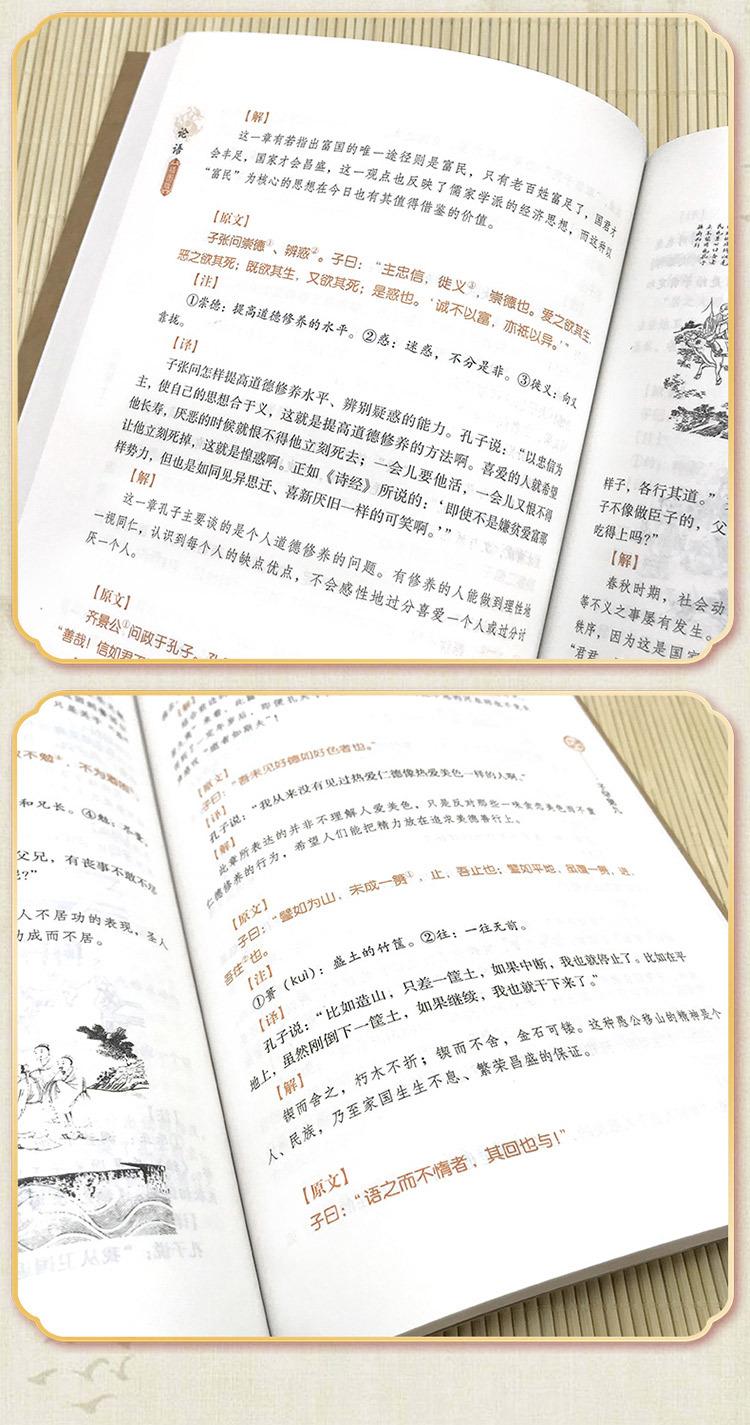 论语
【解】
这一章有若指出富国的唯一途径则是富民，只有老百姓富足了，国君才
会丰足，国家才会昌盛，这一观点也反映了儒家学派的经济思想，而这种以
“富民”为核心的思想在今日也有其值得借鉴的价值。
【原文】
子张问崇德①、辨惑②。子曰：“主忠信，徙义③，崇德也。爱之欲其生，
恶之欲其死；既欲其生，又欲其死；是惑也。‘诚不以富，亦祇以异。’”
【注】
①崇德：提高道德修养的水平。②惑：迷惑，不分是非。③徙义：向义
靠拢。
【译】
子张问怎样提高道德修养水平、辨别疑惑的能力。孔子说：“以忠信为
主，使自己的思想合于义，这就是提高道德修养的方法啊。喜爱的人就希望
他长寿，厌恶的时候就恨不得他立刻死去；一会儿要他活，一会儿又恨不得
让他立刻死掉，这就是惶惑啊。正如《诗经》所说的：‘即使不是嫌贫爱富那
样势力，但也是如同见异思迁、喜新厌旧一样的可笑啊。’”
【解】
这一章孔子主要谈的是个人道德修养的问题。有修养的人能做到理性地
一视同仁，认识到每个人的缺点优点，不会感性地过分喜爱一个人或过分讨
厌一个人。
【原文】
齐景公①问政于孔子。孔
“善哉！信如君不
样子，各行其道。”
子不像做臣子的，父
吃得上吗？”
【解】
春秋时期，社会动
等不义之事屡有发生。
秩序，因为这是国家
“君君
不勉③，不为酒困
和兄长。④勉：尽量，
父兄，有丧事不敢不尽
？”
人不居功的表现，圣人
功成而不居。
【原文】
子曰：“吾未见好德如好色者也。”
【译】
孔子说：“我从来没有见过热爱仁德像热爱美色一样的人啊。”
【解】
此章所表达的并非不理解人爱美色，只是反对那些一味贪恋美色而不重
仁德修养的行为，希望人们能把精力放在追求美德善行上。
【原文】
子曰：“譬如为山，未成一篑①，止，吾止也；譬如平地，虽覆一篑，进，
吾往②也。
【注】
①篑（kuì）：盛土的竹筐。②往：一往无前。
【译】
孔子说：“比如造山，只差一筐土，如果中断，我也就停止了。比如在平
地上，虽然刚倒下一筐土，如果继续，我也就干下来了。”
【解】
锲而舍之，朽木不折；锲而不舍，金石可镂。这种愚公移山的精神是个
人、民族，乃至家国生生不息、繁荣昌盛的保证。
【原文】
子曰：“语之而不惰者，其回也与！”